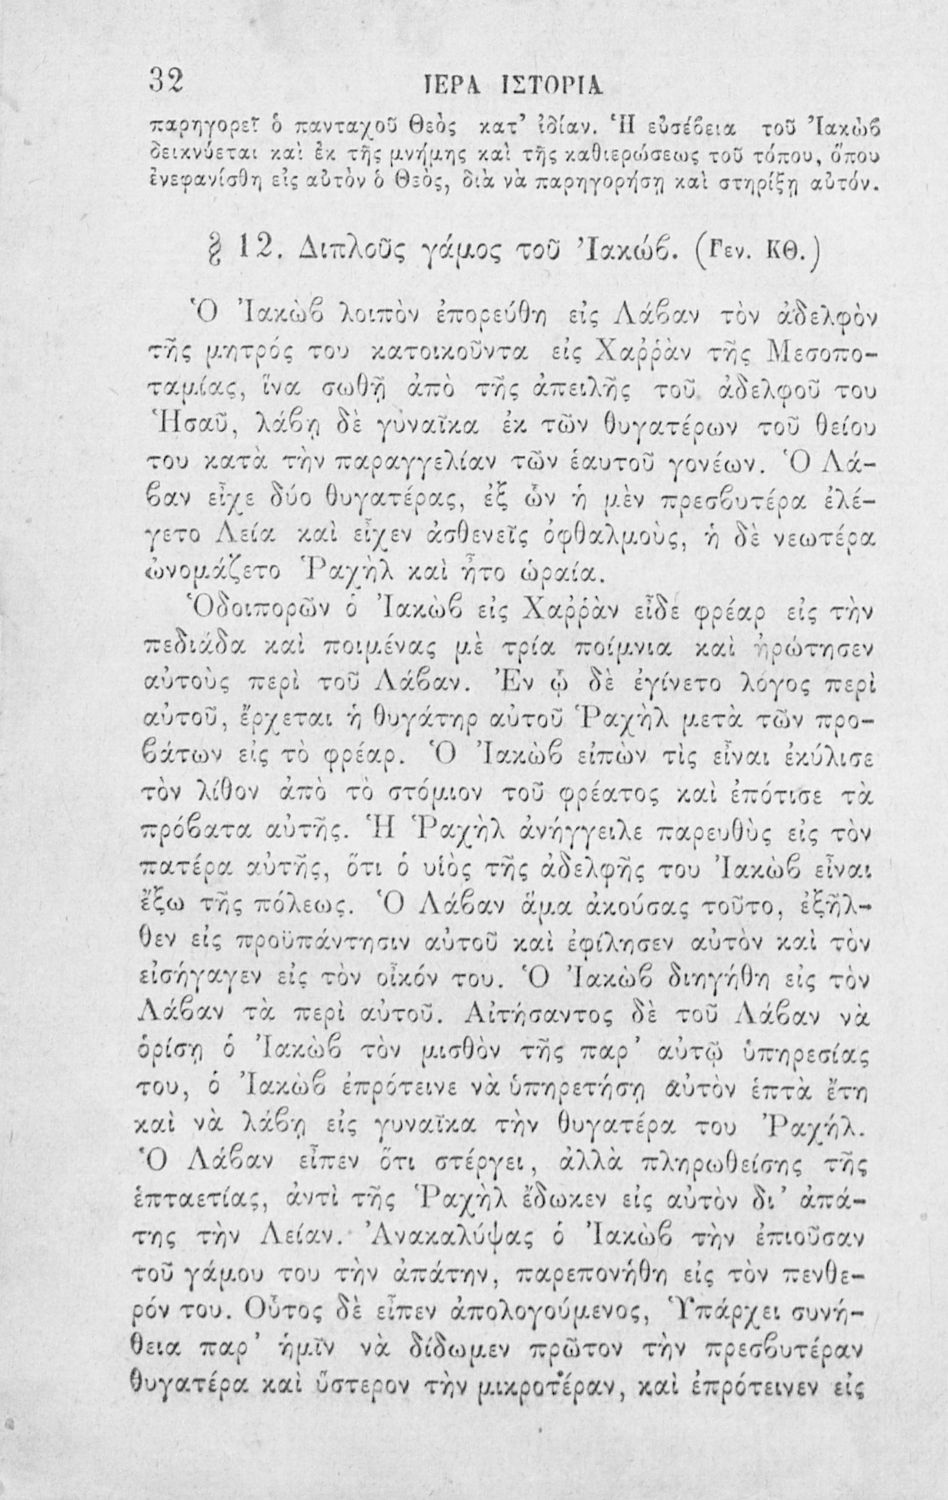 32 ΙΕΡΑ ΙΣΤΟΡΙΑ
παρηγορεῖ ὁ πανταχοῦ Θεὸς κατ’ ἰδίαν. Ἡ εὐσέβεια τοῦ Ἰακὼβ
δεικνύεται καὶ ἐκ τῆς μνήμης καὶ τῆς καθιερώσεως τοῦ τόπου, ὅπου
ἐνεφανίσθη εἰς αὐτὸν ὁ Θεὸς, διὰ νὰ παρηγορήσῃ καὶ στηρίξῃ αὐτόν.
§ 12. Διπλοῦς γάμος τοῦ Ἰακώβ. (Γεν. ΚΘ.)
Ὁ Ἰακὼβ λοιπὸν ἐπορεύθη εἰς Λάβαν τὸν ἀδελφὸν
τῆς μητρός του κατοικοῦντα εἰς Χαῤῥὰν τῆς Μεσοπο-
ταμίας, ἵνα σωθῇ ἀπὸ τῆς ἀπειλῆς τοῦ ἀδελφοῦ του
Ἠσαῦ, λάβῃ δὲ γυναῖκα ἐκ τῶν θυγατέρων τοῦ θείου
του κατὰ τὴν παραγγελίαν τῶν ἑαυτοῦ γονέων. Ὁ Λά-
βαν εἶχε δύο θυγατέρας, ἐξ ὧν ἡ μὲν πρεσβυτέρα ἐλέ-
γετο Λεία καὶ εἶχεν ἀσθενεῖς ὀφθαλμοὺς, ἡ δὲ νεωτέρα
ὠνομάζετο Ῥαχὴλ καὶ ἦτο ὡραία.
Ὁδοιπορῶν ὁ Ἰακὼβ εἰς Χαῤῥὰν εἶδε φρέαρ εἰς τὴν
πεδιάδα καὶ ποιμένας μὲ τρία ποίμνια καὶ ἠρώτησεν
αὐτοὺς περὶ τοῦ Λάβαν. Ἐν ᾧ δὲ ἐγίνετο λόγος περὶ
αὐτοῦ, ἔρχεται ἡ θυγάτηρ αὐτοῦ Ῥαχὴλ μετὰ τῶν προ-
βάτων εἰς τὸ φρέαρ. Ὁ Ἰακὼβ εἰπὼν τὶς εἶναι ἐκύλισε
τὸν λίθον ἀπὸ τὸ στόμιον τοῦ φρέατος καὶ ἐπότισε τὰ
πρόβατα αὐτῆς. Ἡ Ῥαχὴλ ἀνήγγειλε παρευθὺς εἰς τὸν
πατέρα αὐτῆς, ὅτι ὁ υἱὸς τῆς ἀδελφῆς του Ἰακὼβ εἶναι
ἔξω τῆς πόλεως. Ὁ Λάβαν ἅμα ἀκούσας τοῦτο, ἐξῆλ-
θεν εἰς προϋπάντησιν αὐτοῦ καὶ ἐφίλησεν αὐτὸν καὶ τὸν
εἰσήγαγεν εἰς τὸν οἶκόν του. Ὁ Ἰακὼβ διηγήθη εἰς τὸν
Λάβαν τὰ περὶ αὐτοῦ. Αἰτήσαντος δὲ τοῦ Λάβαν νὰ
ὁρίσῃ ὁ Ἰακὼβ τὸν μισθὸν τῆς παρ’ αὐτῷ ὑπηρεσίας
του, ὁ Ἰακὼβ ἐπρότεινε νὰ ὑπηρετήσῃ αὐτὸν ἑπτὰ ἔτη
καὶ νὰ λάβῃ εἰς γυναῖκα τὴν θυγατέρα του Ῥαχήλ.
Ὁ Λάβαν εἶπεν ὅτι στέργει, ἀλλὰ πληρωθείσης τῆς
ἑπταετίας, ἀντὶ τῆς Ῥαχὴλ ἔδωκεν εἰς αὐτὸν δι’ ἀπά-
της τὴν Λείαν. Ἀνακαλύψας ὁ Ἰακὼβ τὴν ἐπιοῦσαν
τοῦ γάμου του τὴν ἀπάτην, παρεπονήθη εἰς τὸν πενθε-
ρόν του. Οὗτος δὲ εἶπεν ἀπολογούμενος, Ὑπάρχει συνή-
θεια παρ’ ἡμῖν νὰ δίδωμεν πρῶτον τὴν πρεσβυτέραν
θυγατέρα καὶ ὕστερον τὴν μικροτέραν, καὶ ἐπρότεινεν εἰς